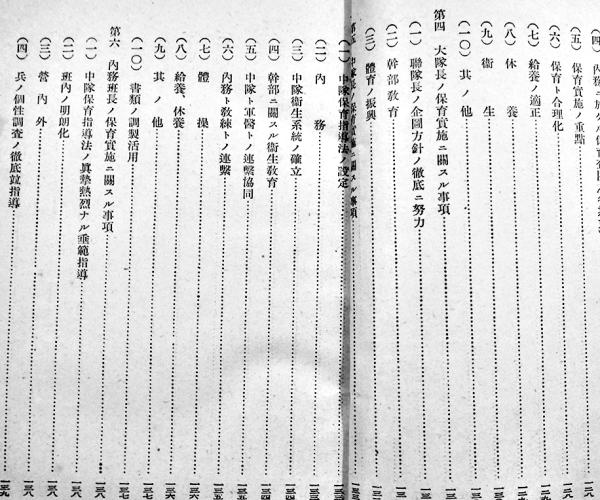 （五）保育實施ノ重點
（六）保育ト合理化
（七）給養ノ適正
（八）休養
（九）衞生
（一〇）其ノ他
第四 大隊長ノ保育實施ニ關スル事項
（一）聯隊長ノ企圖方針ノ徹底ニ努力
（二）幹部敎育
（三）體育ノ振興
第五 中隊長ノ保育實施ニ關スル事項
（一）中隊保育指導法ノ設定
（二）內務
（三）中隊衞生系統ノ確立
（四）幹部ニ關スル衞生敎育
（五）中隊ト軍醫トノ連繫協同
（六）內務ト敎練トノ連繫
（七）體操
（八）給養、休養
（九）其ノ他
（一〇）書類ノ調製活用
第六 內務班長ノ保育實施ニ關スル事項
（一）中隊保育指導法ノ眞摯熱烈ナル垂範指導
（二）班內ノ明朗化
（三）營內外
（四）兵ノ個性調查ノ徹底竝指導